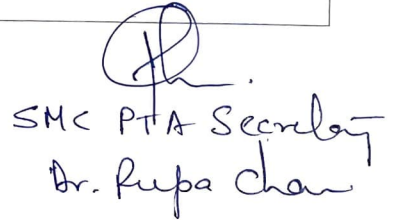 SMC PTA Secretary
Dr. Rupa Chan